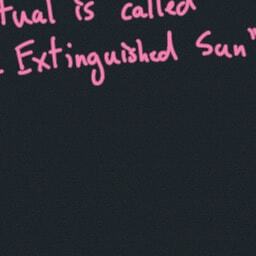 tual is called
Extinguished Sun"